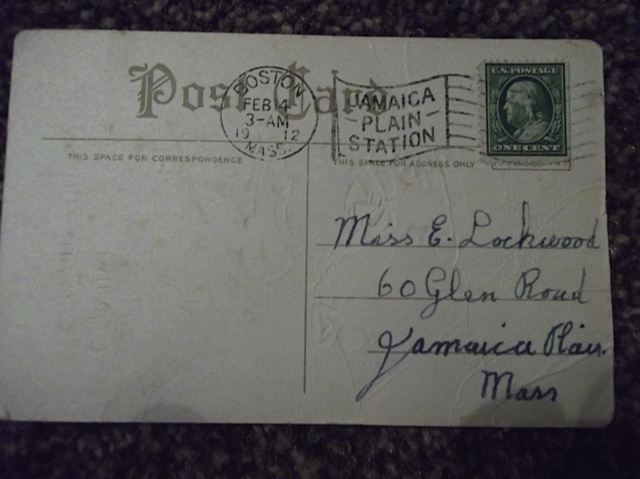 Post Card
BOSTON
FEB 4
3-AM
19 12
MASS.
JAMAICA
PLAIN
STATION
U.S. POSTAGE
ONE CENT
THIS SPACE FOR CORRESPONDENCE
THIS SPACE FOR ADDRESS ONLY
Miss E. Lockwood
60 Glen Road
Jamaica Plain.
Mass